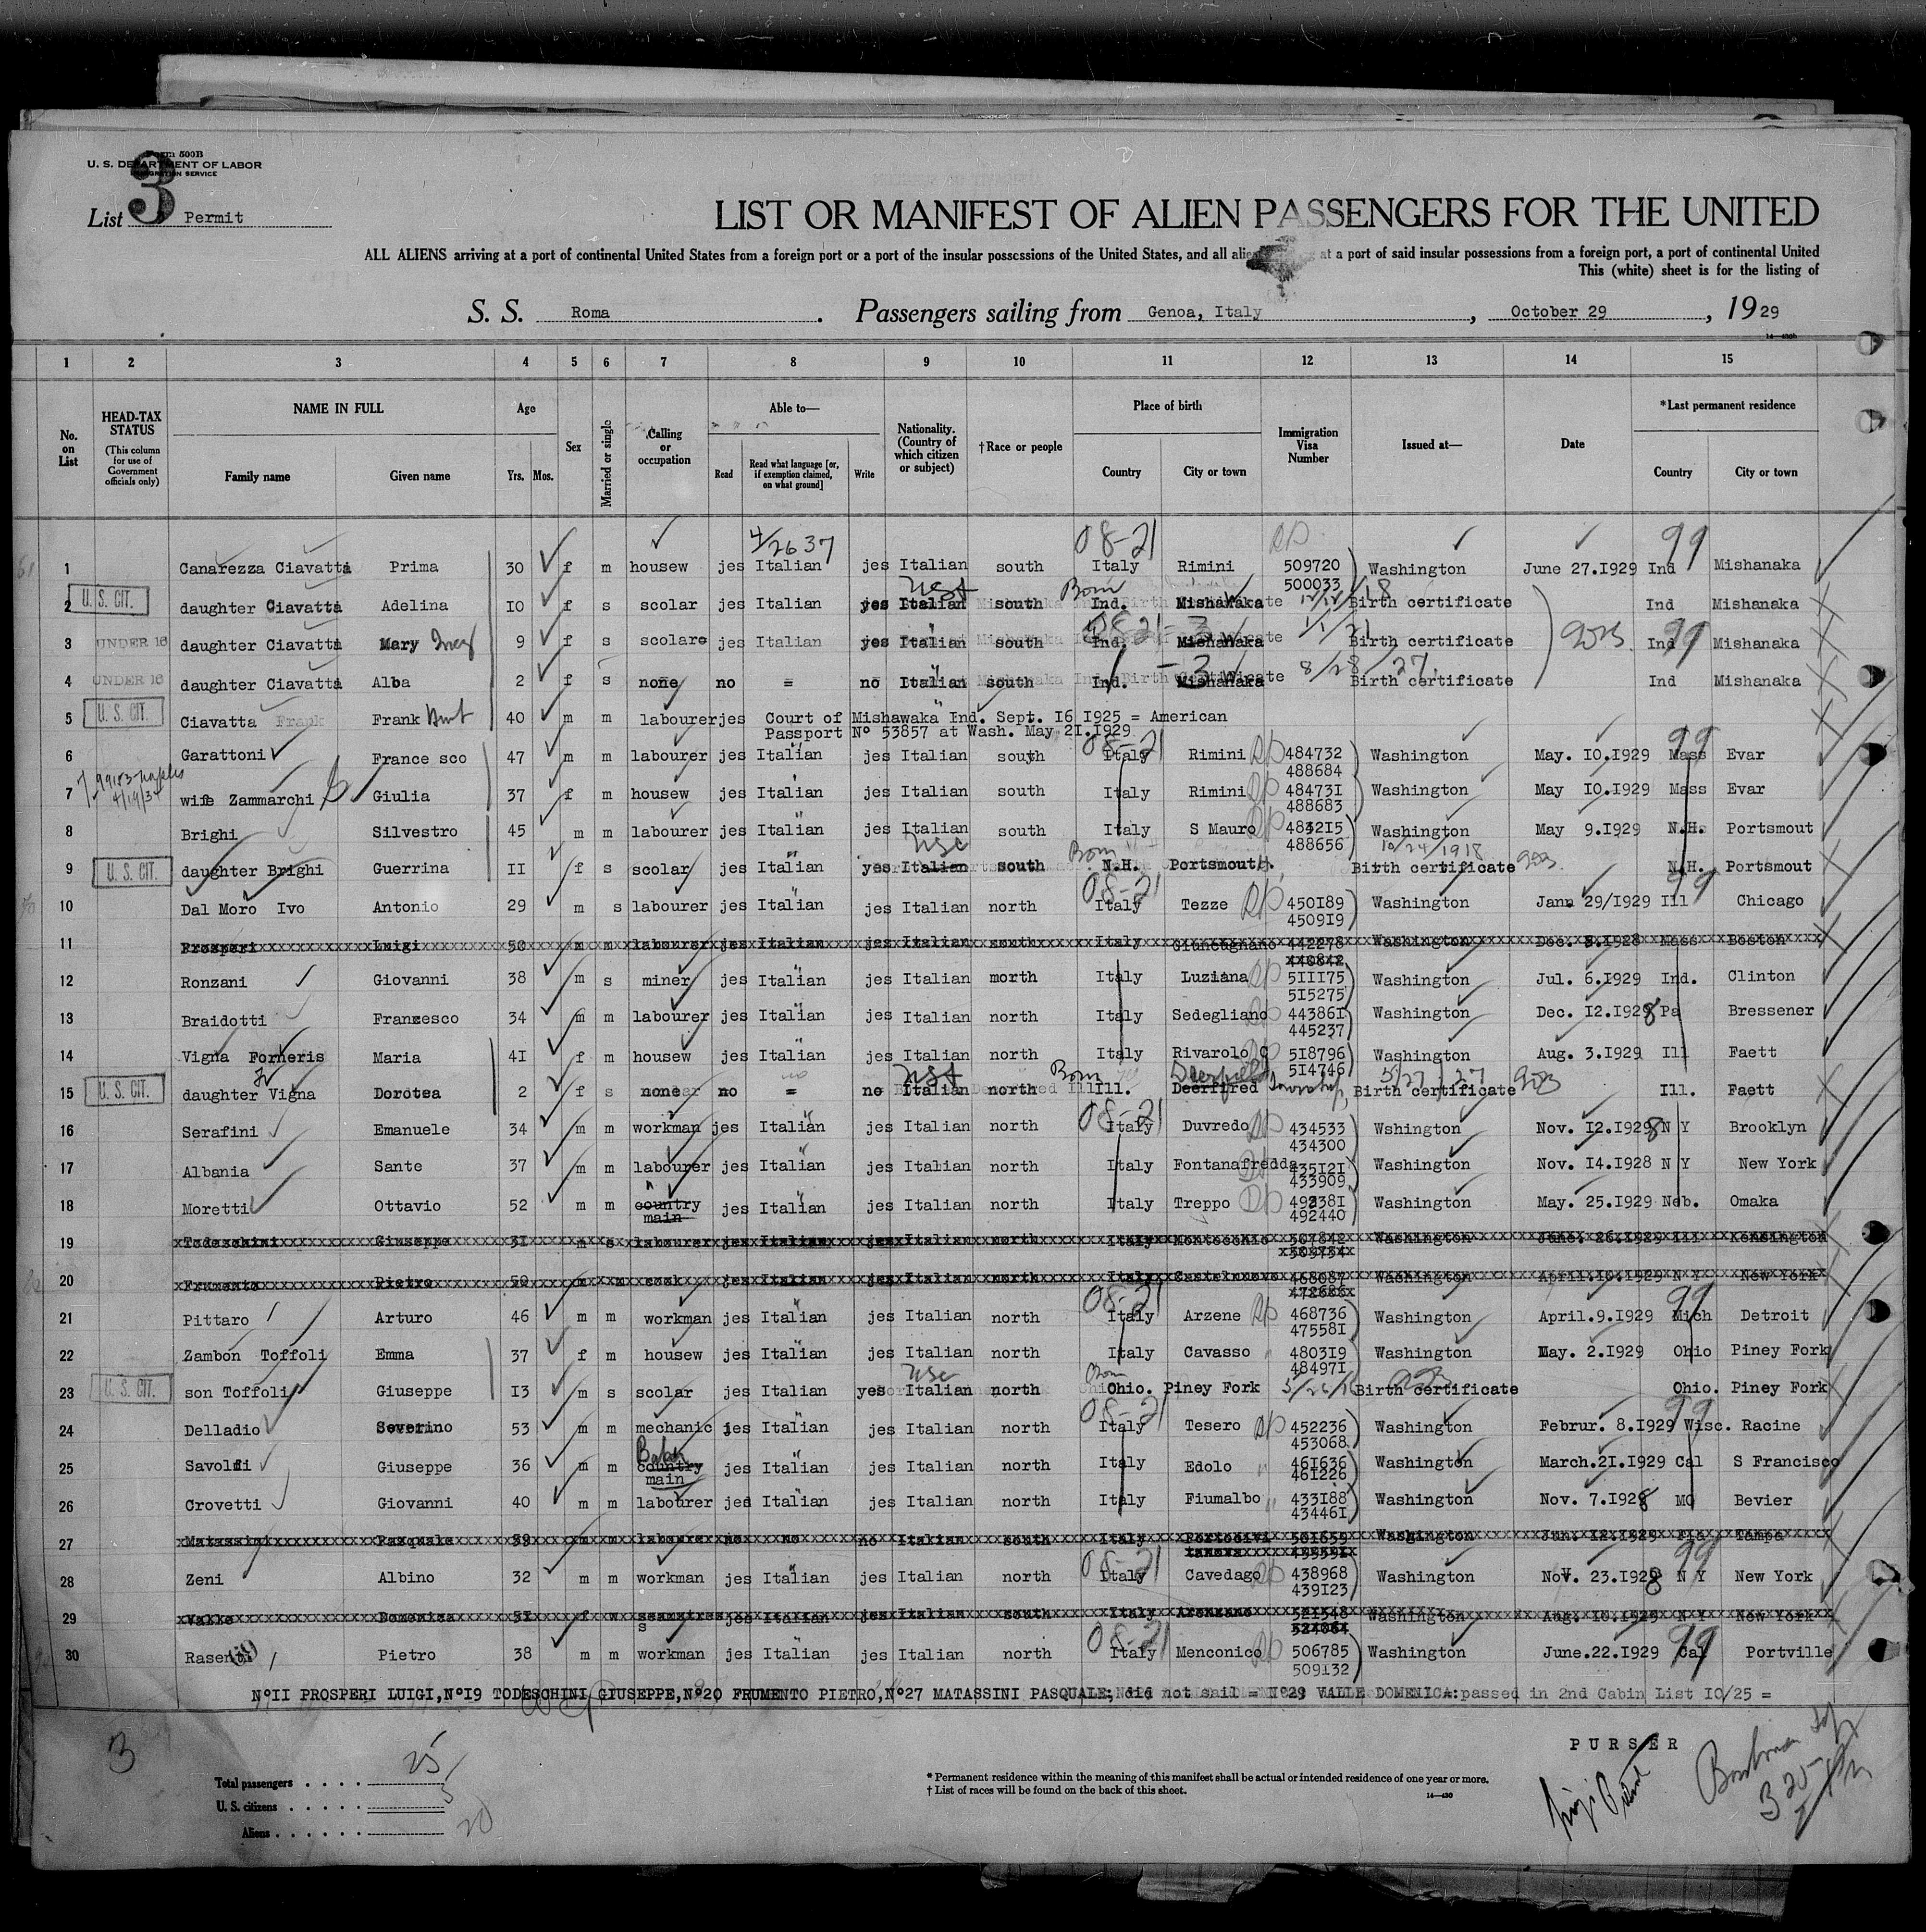 Form 500B
U. S. DEPARTMENT OF LABOR
IMMIGRATION SERVICE
3
List Permit
LIST OR MANIFEST OF ALIEN PASSENGERS FOR THE UNITED
ALL ALIENS arriving at a port of continental United States from a foreign port or a port of the insular possessions of the United States, and all at a port of said insular possessions from a foreign port, a port of continental United
This (white) sheet is for the listing of
S. S. Roma . Passengers sailing from Genoa, Italy , October 29 , 1929
1 2 3 4 5 6 7 8 9 10 11 12 13 14 15
No. on List
HEAD-TAX STATUS (This column for use of Government officials only)
NAME IN FULL Family name Given name
Age Yrs. Mos.
Sex
Married or single
Calling or occupation
Able to— Read Read what language [or, if exemption claimed, on what ground] Write
Nationality. (Country of which citizen or subject)
†Race or people
Place of birth Country City or town
Immigration Visa Number
Issued at—
Date
*Last permanent residence Country City or town
4/26 37 08-21 99
1 Canarezza Ciavatta Prima 30 f m housew jes Italian jes Italian south Italy Rimini 509720 Washington June 27.I929 Ind Mishanaka
500033
2 U. S. CIT. daughter Ciavatta Adelina IO f s scolar jes Italian yes Italian south Born Ind. Mishanaka Birth certificate Ind Mishanaka
3 UNDER 16 daughter Ciavatta Mary Inez 9 f s scolare jes Italian yes Italian south Ind. Mishanaka 1/1/21 Birth certificate Ind 99 Mishanaka
4 UNDER 16 daughter Ciavatta Alba 2 f s none no = no Italian south Ind. Mishanaka 8/28/27 Birth certificate Ind Mishanaka
5 U. S. CIT. Ciavatta Frank Frank 40 m m labourer jes Court of Mishawaka Ind. Sept. I6 I925 = American
Passport N° 53857 at Wash. May 2I.I929
6 Garattoni France sco 47 m m labourer jes Italian jes Italian south Italy Rimini 484732 Washington May. IO.I929 Mass Evar
488684
7 wife Zammarchi Giulia 37 f m housew jes Italian jes Italian south Italy Rimini 48473I Washington May IO.I929 Mass Evar
488683
8 Brighi Silvestro 45 m m labourer jes Italian jes Italian south Italy S Mauro 4832I5 Washington May 9.I929 N.H. Portsmout
488656
10/24/1918
9 U. S. CIT. daughter Brighi Guerrina II f s scolar jes Italian yes Italian south Born N.H. Portsmout Birth certificate N.H. Portsmout
10 Dal Moro Ivo Antonio 29 m s labourer jes Italian jes Italian north Italy Tezze 450I89 Washington Jann 29/I929 Ill Chicago
4509I9
11 Prosperi Luigi 50 m m labourer jes Italian jes Italian south Italy Giuncugnano 442278 Washington Dec. 8.I928 Mass Boston
440842
12 Ronzani Giovanni 38 m s miner jes Italian jes Italian morth Italy Luziana 5III75 Washington Jul. 6.I929 Ind. Clinton
5I5275
13 Braidotti Franzesco 34 m m labourer jes Italian jes Italian north Italy Sedegliano 44386I Washington Dec. I2.I928 Pa Bressener
445237
14 Vigna Forneris Maria 4I f m housew jes Italian jes Italian north Italy Rivarolo C 5I8796 Washington Aug. 3.I929 Ill Faett
5I4746
15 U. S. CIT. daughter Vigna Dorotea 2 f s none no = no Italian north Born Ill. Deerfired Deerfield Township, 5/27/27 Birth certificate Ill. Faett
16 Serafini Emanuele 34 m m workman jes Italian jes Italian north Italy Duvredo 434533 Wshington Nov. I2.I928 N Y Brooklyn
434300
17 Albania Sante 37 m m labourer jes Italian jes Italian north Italy Fontanafredda 435I2I Washington Nov. I4.I928 N Y New York
433909
18 Moretti Ottavio 52 m m country jes Italian jes Italian north Italy Treppo 49238I Washington May. 25.I929 Neb. Omaka
main 492440
19 Todeschini Giuseppe 3I m s labourer jes Italian jes Italian north Italy Montecchio 507842 Washington June. 26.I929 Ill Kensington
20 Frumento Pietro 50 m m cook jes Italian jes Italian north Italy Castelnuovo 468087 Washington April.I0.I929 N Y New York
472686
21 Pittaro Arturo 46 m m workman jes Italian jes Italian north Italy Arzene 468736 Washington April.9.I929 Mich Detroit
47558I
22 Zambon Toffoli Emma 37 f m housew jes Italian jes Italian north Italy Cavasso 4803I9 Washington May. 2.I929 Ohio Piney Fork
48497I
23 U. S. CIT. son Toffoli Giuseppe I3 m s scolar jes Italian yes Italian north Born Ohio. Piney Fork 5/26/16 Birth certificate Ohio. Piney Fork
24 Delladio Severino 53 m m mechanic jes Italian jes Italian north Italy Tesero 452236 Washington Februr. 8.I929 Wisc. Racine
453068
25 Savoldi Giuseppe 36 m m country jes Italian jes Italian north Italy Edolo 46I636 Washington March.2I.I929 Cal S Francisco
main 46I226
26 Crovetti Giovanni 40 m m labourer jes Italian jes Italian north Italy Fiumalbo 433I88 Washington Nov. 7.I928 MO Bevier
43446I
27 Matassini Pasquale 39 m m labourer no no no Italian south Italy 50I659 Washington Jun. I2.I929 Fla Tampa
28 Zeni Albino 32 m m workman jes Italian jes Italian north Italy Cavedago 438968 Washington Nov. 23.I928 N Y New York
439I23
29 Valle Domenica 5I f w seamstres jes Italian jes Italian south Italy Arenzano 52I548 Washington Aug. I0.I929 N Y New York
s
30 Rasenti Pietro 38 m m workman jes Italian jes Italian north Italy Menconico 506785 Washington June.22.I929 Cal Portville
509I32
N°II PROSPERI LUIGI,N°I9 TODESCHINI GIUSEPPE,N°20 FRUMENTO PIETRO,N°27 MATASSINI PASQUALE; did not sail = N°29 VALLE DOMENICA:passed in 2nd Cabin List IO/25 =
3
PURSER
Total passengers . . . . . 25
U. S. citizens . . . . . 5
Aliens . . . . . . 20
* Permanent residence within the meaning of this manifest shall be actual or intended residence of one year or more.
† List of races will be found on the back of this sheet.
14—430